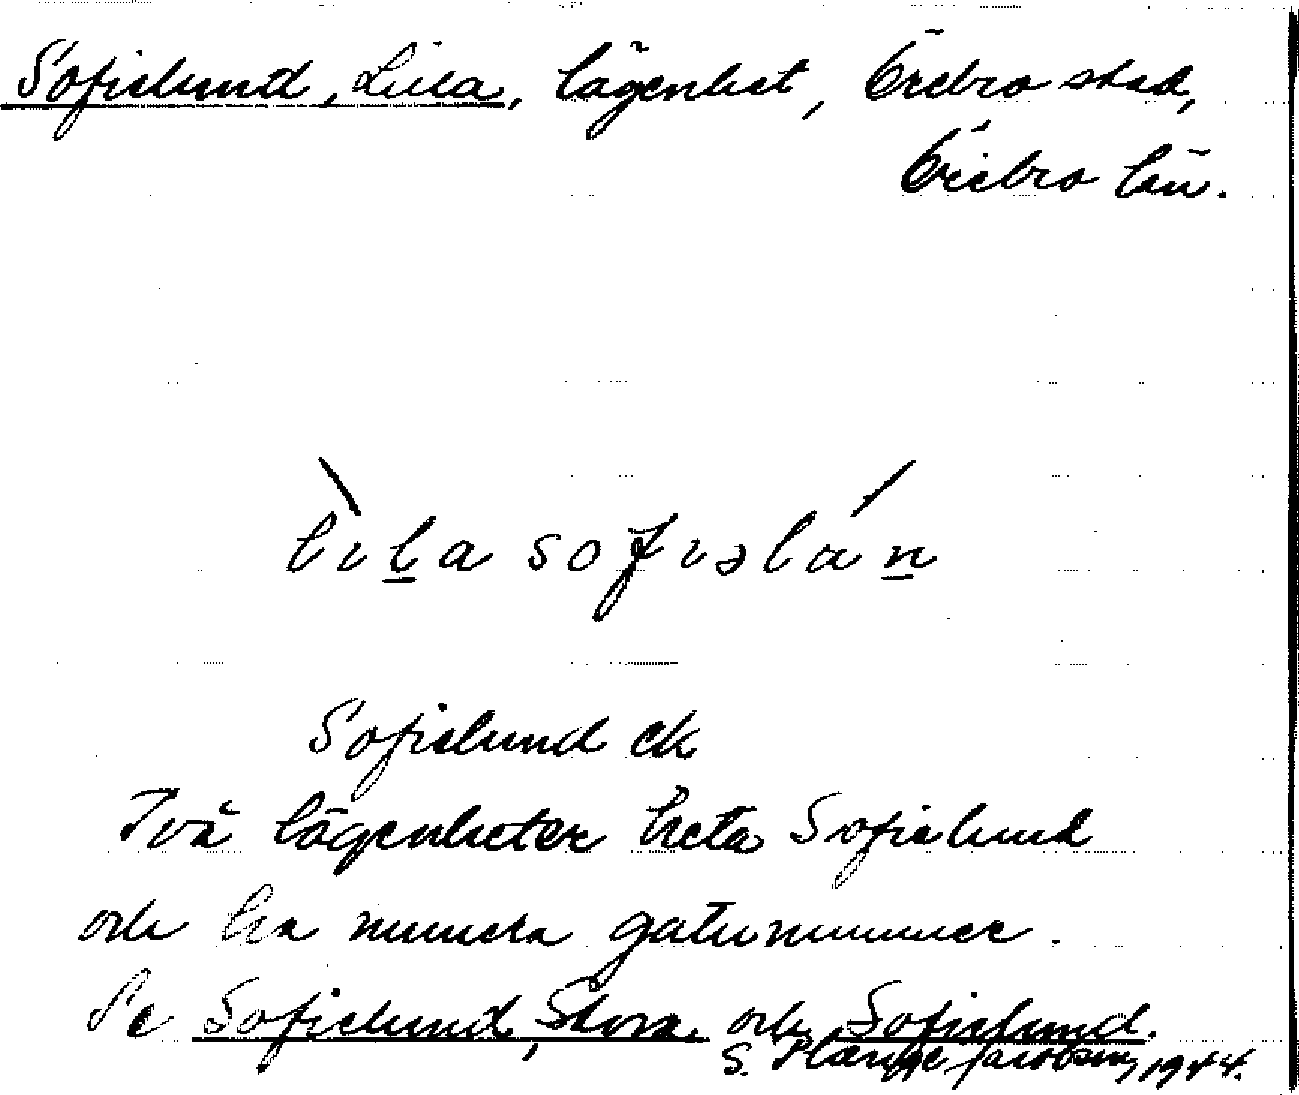 Sofielund, Lilla, lägenhet, Örebro stad,
Örebro län.
lìḻa sofiəlán̲
Sofielund ek
Två lägenheter heta Sofielund
och ha numera gatunummer.
Se Sofielund, Stora. och Sofielund.
S. Plænge Jacobson, 1944.